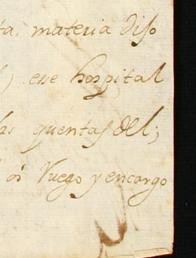 ta, materia diso
) ese hospital
las quentas del;
os Ruego y encargo